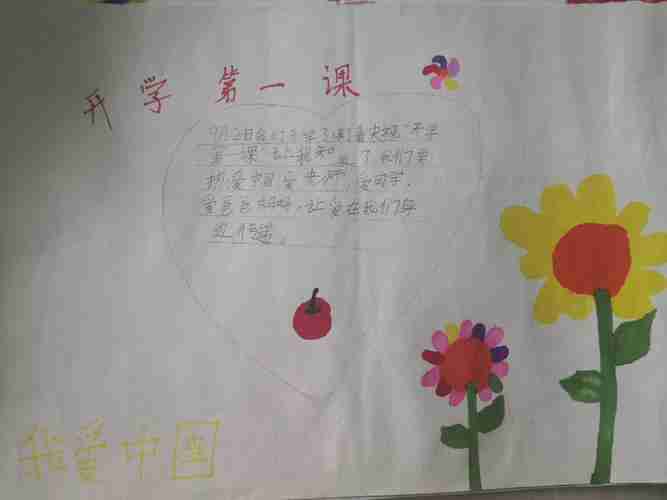 开学第一课
9月2日我们开学了,我们看央视"开学
第一课"让我知道了我们要
热爱中国爱老师,爱同学,
爱爸爸妈妈,让爱在我们身
边传递。
我爱中国